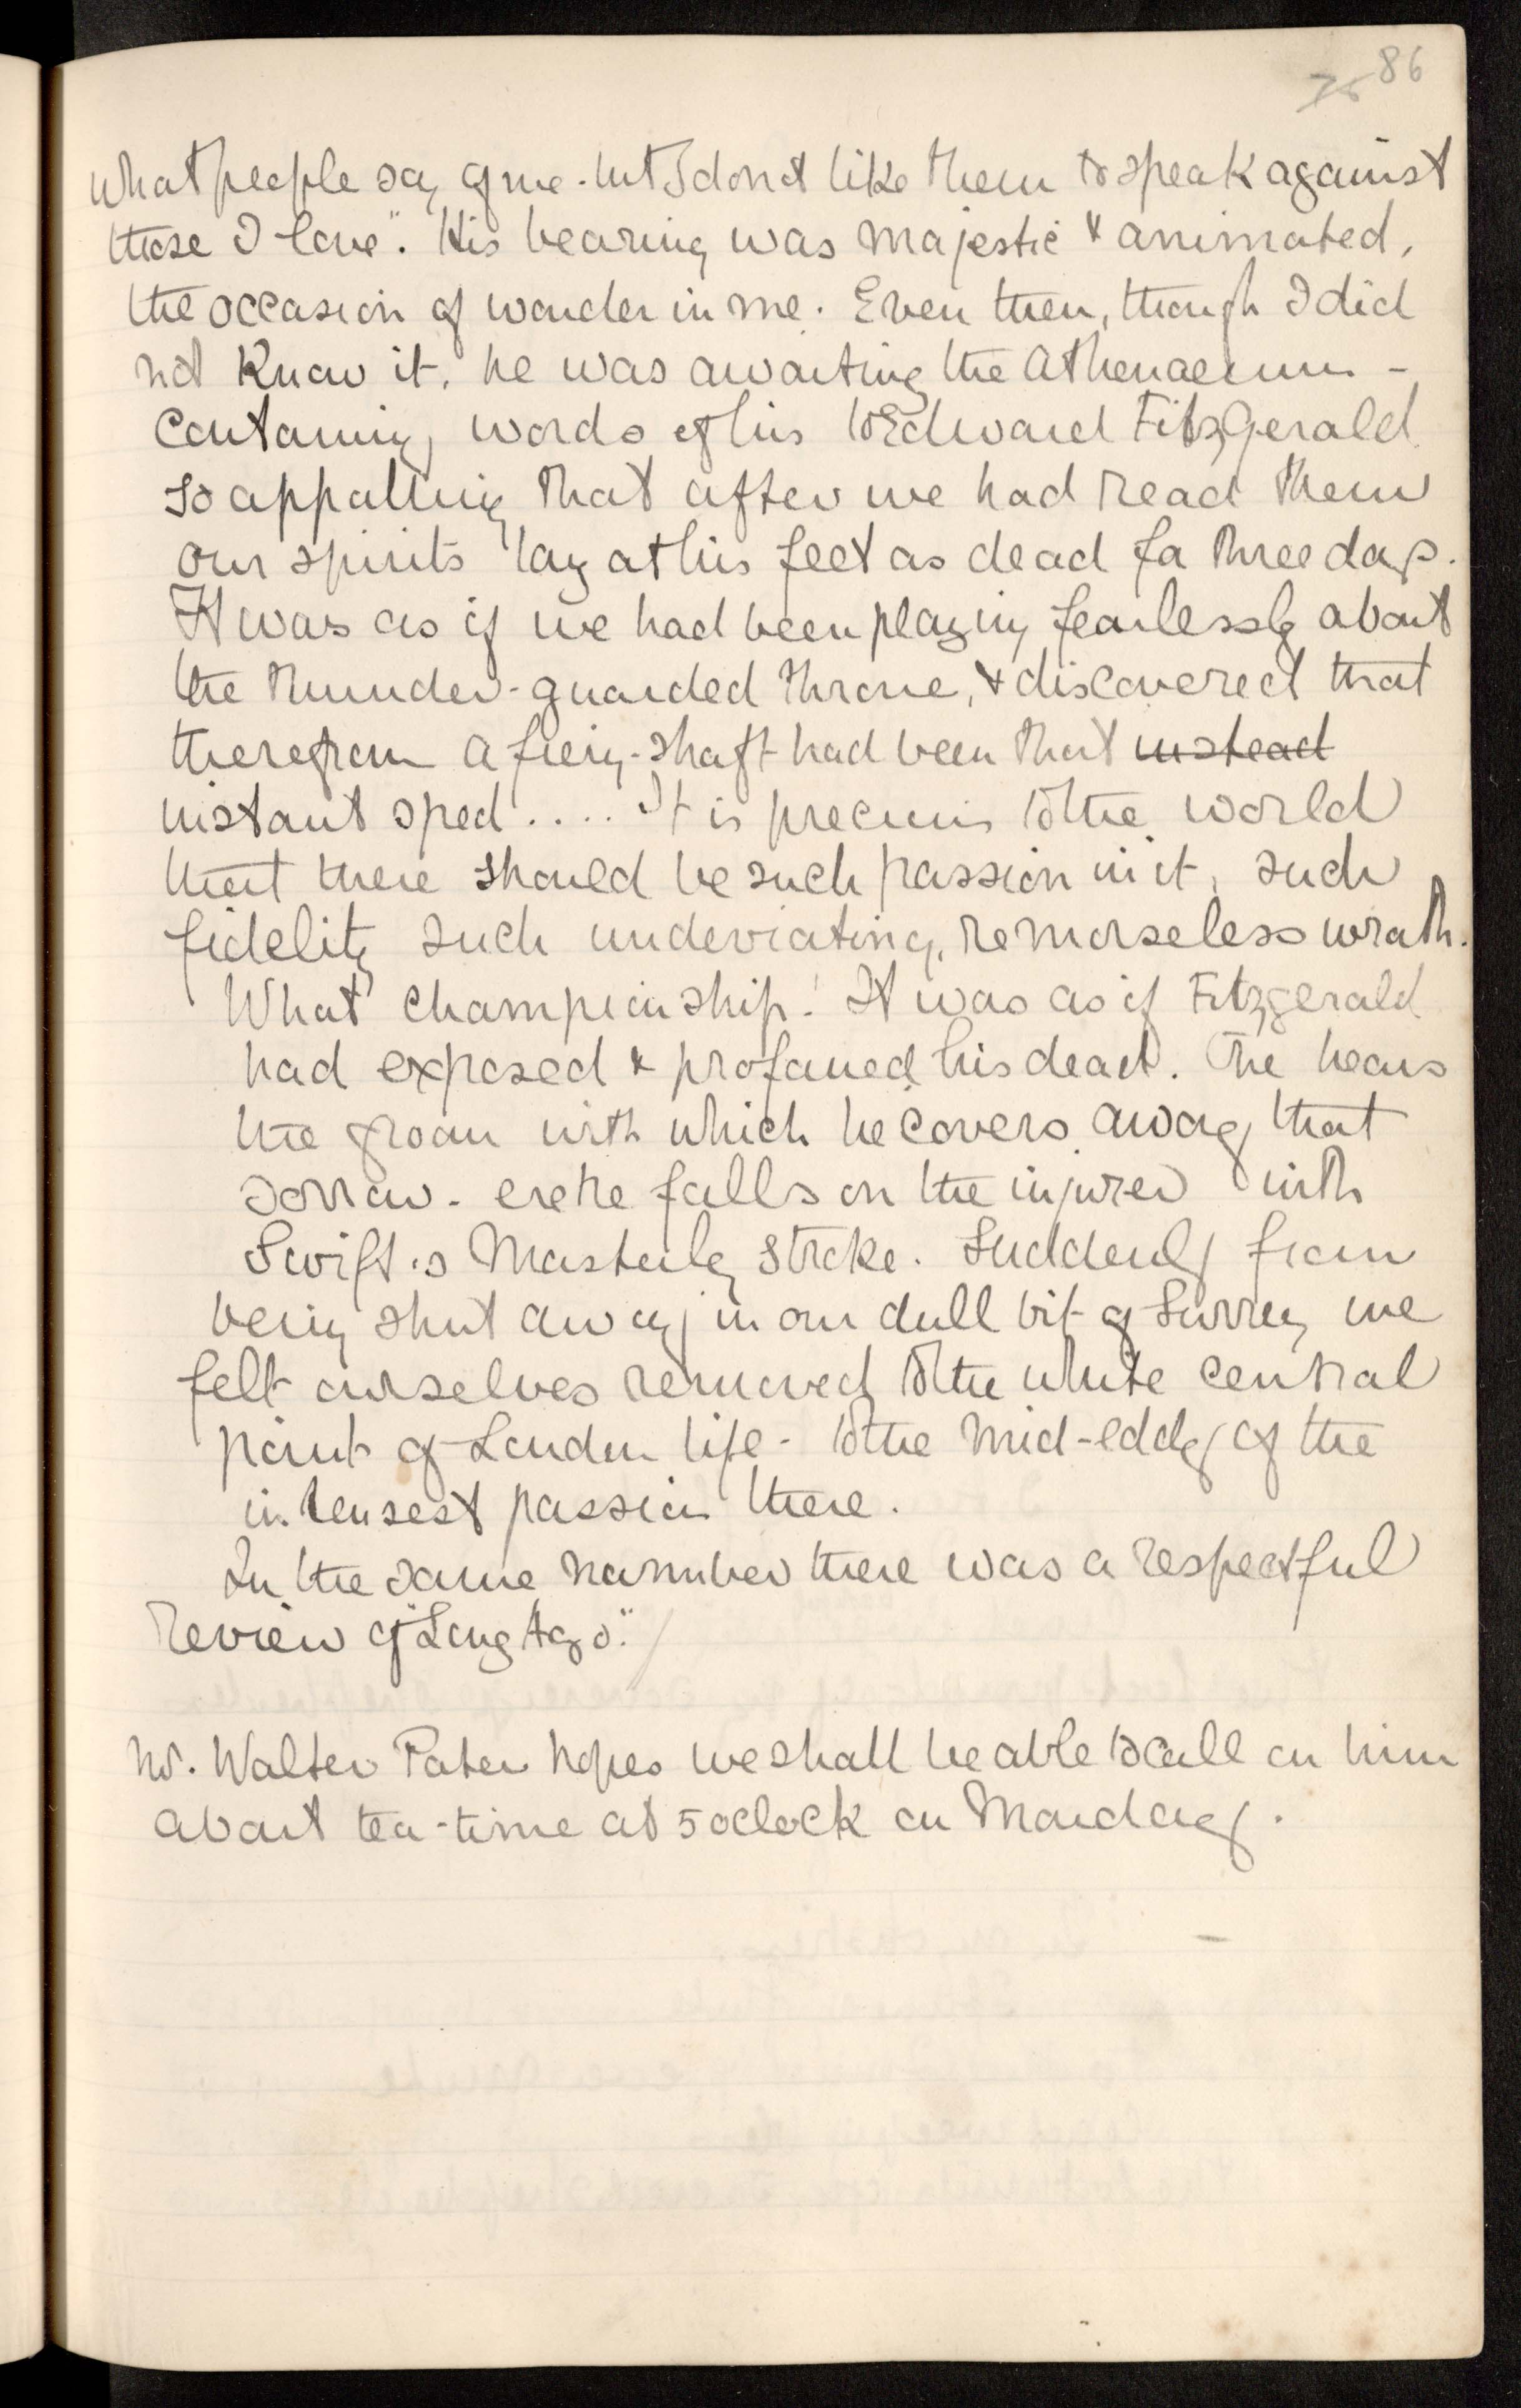 75 86
what people say of me - but I don't like them to speak against
those I love". His bearing was majestic & animated,
the occasion of wonder in me. Even then, though I did
not know it, he was awaiting the Athenaeum -
containing words of his to Edward FitzGerald
so appalling that after we had read them
our spirits lay at his feet as dead for three days.
It was as if we had been playing fearlessly about
the thunder-guarded throne, & discovered that
therefrom a fiery-shaft had been that instead
instant sped .... It is precious to the world
that there should be such passion in it, such
fidelity such undeviating, remorseless wrath.
What championship! It was as if Fitzgerald
had exposed & profaned his dead. One hears
the groan with which he covers away that
sorrow - ere he falls on the injurer with
Swift's masterly stroke. Suddenly from
being shut away in our dull bit of Surrey we
felt ourselves removed to the white central
point of London life - to the mid-eddy of the
intensest passion there.
In the same number there was a respectful
review of "Long Ago".
Mr. Walter Pater hopes we shall be able to call on him
about tea-time at 5 oclock on Monday.